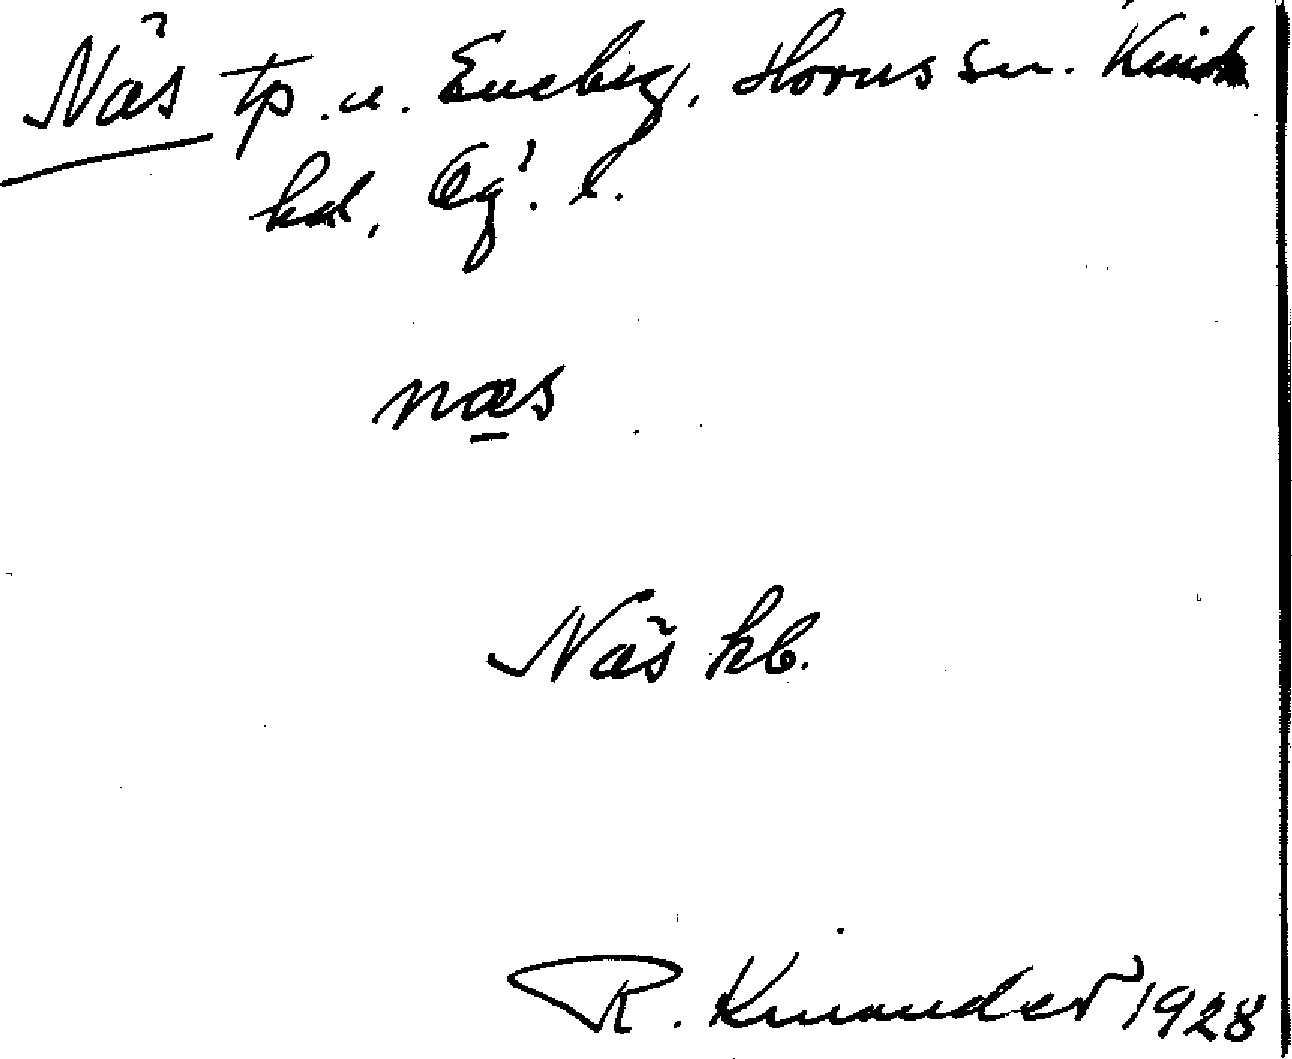 Näs tp. u. Eneby, Horns sn. Kinda
hd, Ög. l.
næs
Näs kb.
R. Kinander 1928